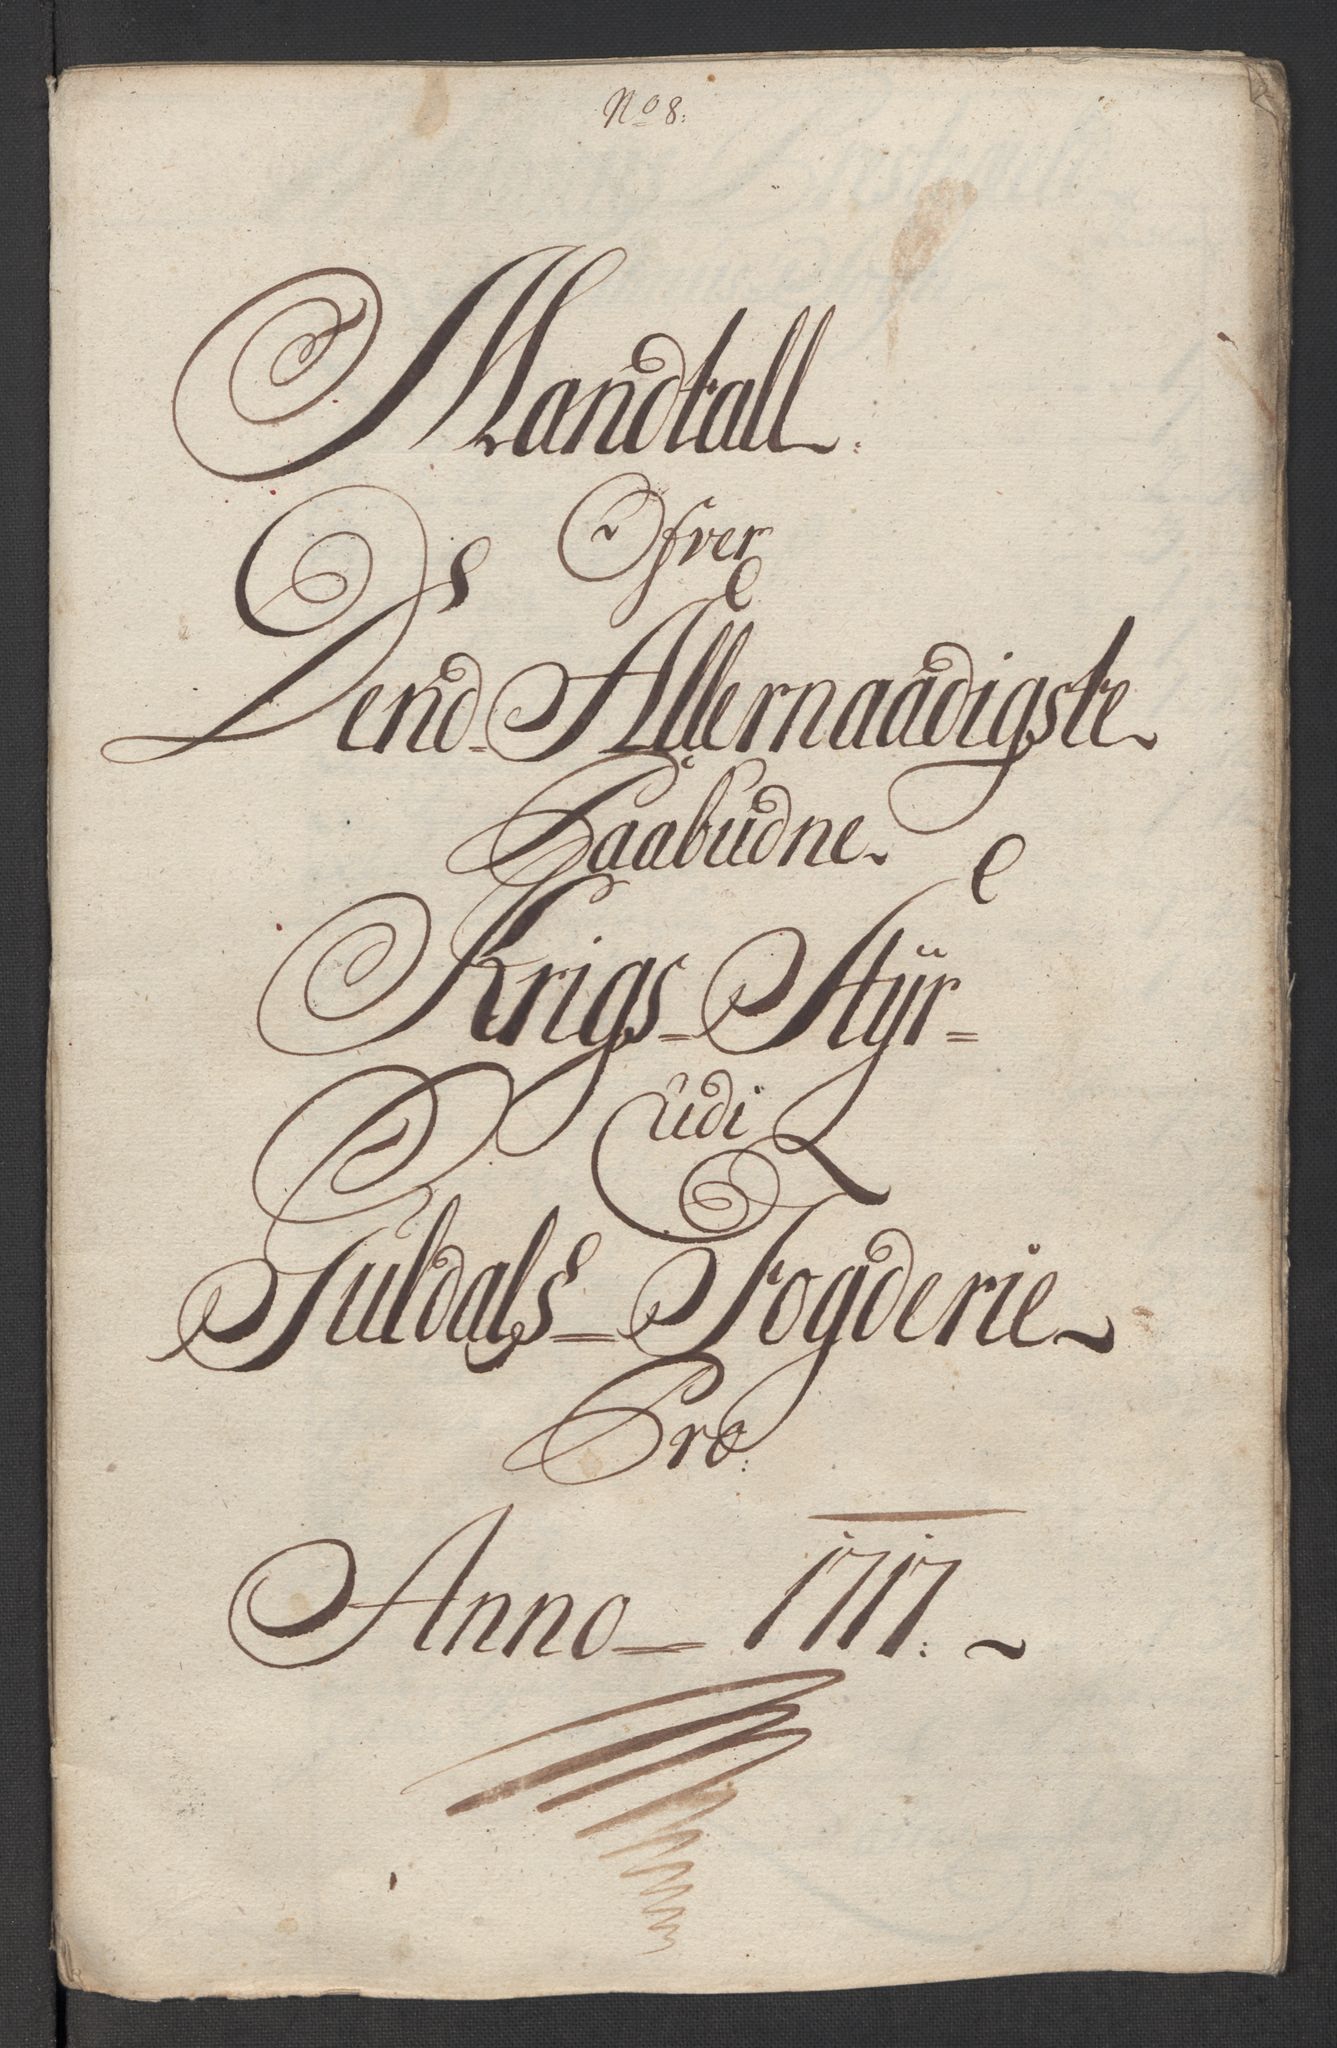 No 8:
Mandtall
Ofver
Dend Allernaadigste
Paabudne
Krigs-Styr=
udi
Guldals Fogderie
Pro:
Anno 1717.